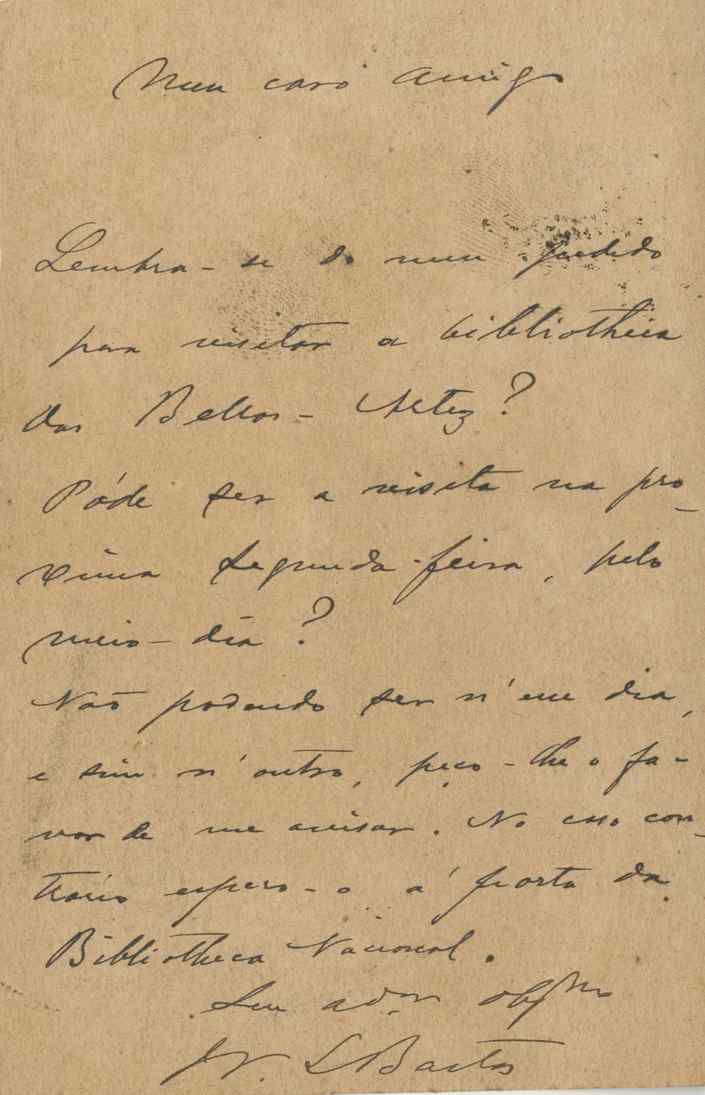 Meu caro amigo
Lembra-se do meu pedido
para visitar a bibliotheca
das Bellas-Artes?
Póde ser a visita na pro-
xima segunda-feira, pelo
meio-dia?
Não podendo ser n'esse dia,
e sim n'outro, peço-lhe o fa-
vor de me avisar. No caso con-
trario espero-o á porta da
Bibliotheca Nacional.
Seu ador obgmo